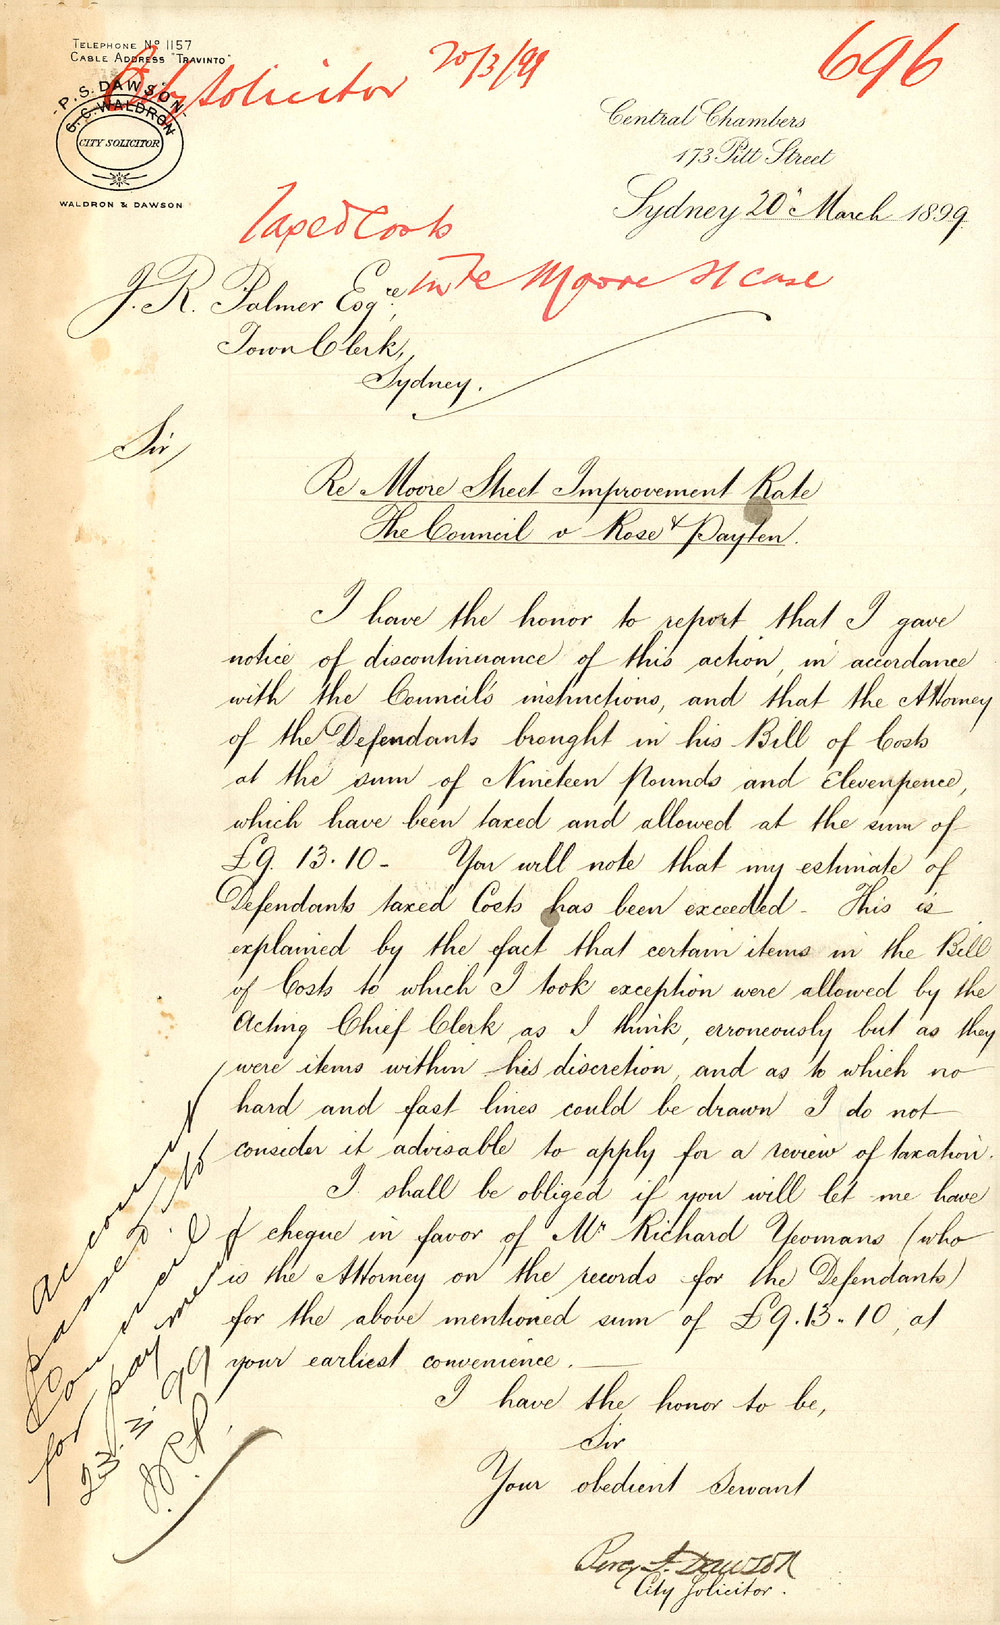 TELEPHONE Nº 1157
CABLE ADDRESS "TRAVINTO"
P. S. DAWSON
G. C. WALDRON
CITY SOLICITOR
WALDRON & DAWSON
City Solicitor 20/3/99
696
Central Chambers
173 Pitt Street
Sydney 20th March 1899
Taxed Costs
in re Moore St case
J. R. Palmer Esqre,
Town Clerk,
Sydney.
Sir,
Re Moore Street Improvement Rate
The Council v Rose & Payten.
I have the honor to report that I gave
notice of discontinuance of this action, in accordance
with the Council's instructions, and that the Attorney
of the Defendants brought in his Bill of Costs
at the sum of Nineteen pounds and Elevenpence,
which have been taxed and allowed at the sum of
£9. 13. 10 - You will note that my estimate of
Defendants taxed Costs has been exceeded - This is
explained by the fact that certain items in the Bill
of Costs to which I took exception were allowed by the
Acting Chief Clerk as I think, erroneously but as they
were items within his discretion, and as to which no
hard and fast lines could be drawn I do not
consider it advisable to apply for a review of taxation.
I shall be obliged if you will let me have
a cheque in favor of Mr Richard Yeomans (who
is the Attorney on the records for the Defendants)
for the above mentioned sum of £9. 13. 10, at
your earliest convenience.
I have the honor to be,
Sir
Your obedient Servant
Percy S. Dawson
City Solicitor.
Account
passed to
Council
for payment
23.3.99
JRP.